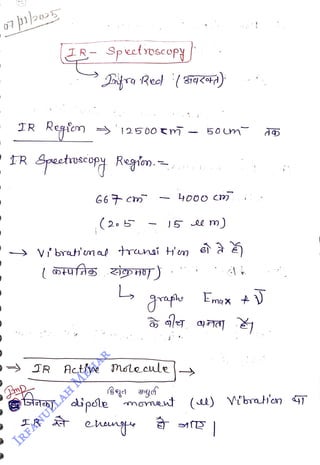 07/01/2025
IR - Spectroscopy
Infra Red (अवरक्त)
IR Region ⇒ 12500 cm⁻ – 50 cm⁻ तक
IR Spectroscopy Region. -
667 cm⁻ – 4000 cm⁻
(2.5 – 15 μm)
→ Vibrational transition होते हैं
(कम्पनिक संक्रमण)
graph Emax + ν̄
के बीच बनता है।
→ IR Active Molecule →
द्विध्रुव आघूर्ण
Imp जिनका dipole moment (μ) Vibration या
IR से change हो जाए।
IRFANULLAH MEHAR